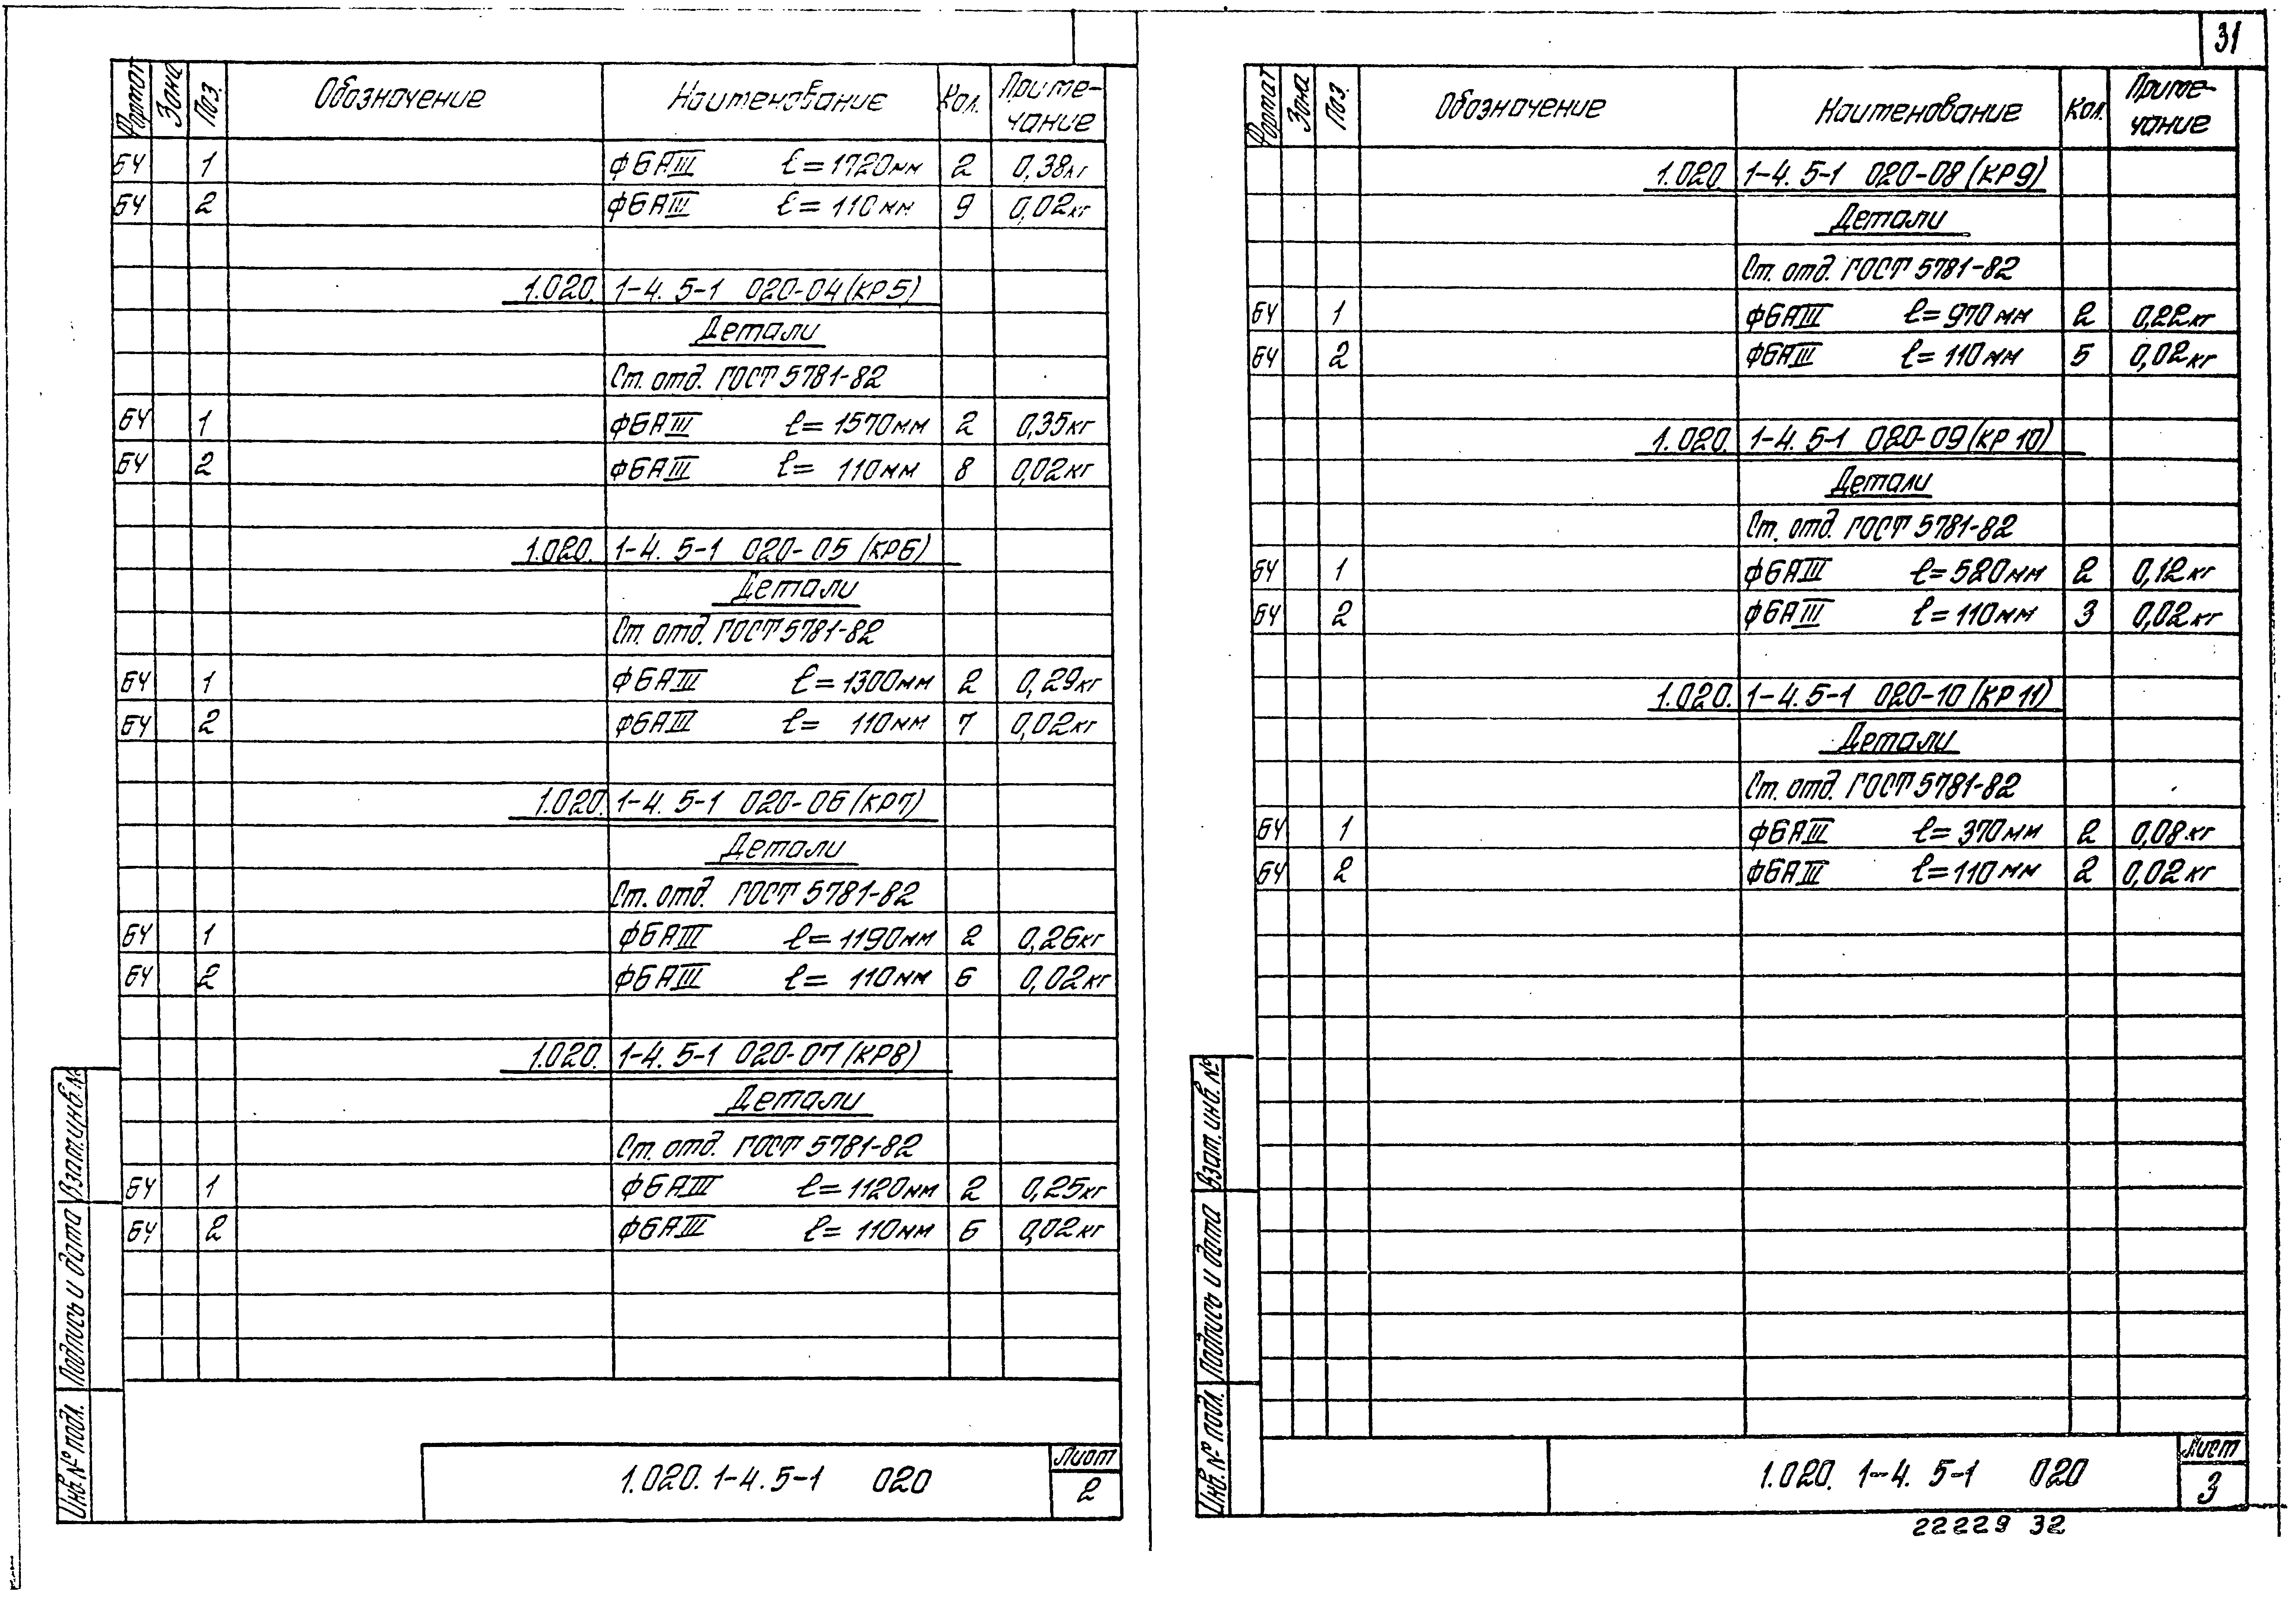 Формат Зона Поз. Обозначение Наименование Кол. Приме-
чание
БЧ 1 Ф6АIII ℓ=1720мм 2 0,38кг
БЧ 2 Ф6АIII ℓ=110мм 9 0,02кг
1.020. 1-4. 5-1 020-04 (КР5)
Детали
Ст. отд. ГОСТ 5781-82
БЧ 1 Ф6АIII ℓ=1570мм 2 0,35кг
БЧ 2 Ф6АIII ℓ= 110мм 8 0,02кг
1.020. 1-4. 5-1 020-05 (КР6)
Детали
Ст. отд. ГОСТ 5781-82
БЧ 1 Ф6АIII ℓ=1300мм 2 0,29кг
БЧ 2 Ф6АIII ℓ= 110мм 7 0,02кг
1.020. 1-4. 5-1 020-06 (КР7)
Детали
Ст. отд. ГОСТ 5781-82
БЧ 1 Ф6АIII ℓ=1190мм 2 0,26кг
БЧ 2 Ф6АIII ℓ= 110мм 6 0,02кг
1.020. 1-4. 5-1 020-07 (КР8)
Детали
Ст. отд. ГОСТ 5781-82
БЧ 1 Ф6АIII ℓ=1120мм 2 0,25кг
БЧ 2 Ф6АIII ℓ= 110мм 6 0,02кг
Инв. № подл. Подпись и дата Взам. инв. №
1.020. 1-4. 5-1 020
Лист
2
31
Формат Зона Поз. Обозначение Наименование Кол. Приме-
чание
1.020. 1-4. 5-1 020-08 (КР9)
Детали
Ст. отд. ГОСТ 5781-82
БЧ 1 Ф6АIII ℓ=970мм 2 0,22кг
БЧ 2 Ф6АIII ℓ=110мм 5 0,02кг
1.020. 1-4. 5-1 020-09 (КР10)
Детали
Ст. отд. ГОСТ 5781-82
БЧ 1 Ф6АIII ℓ=520мм 2 0,12кг
БЧ 2 Ф6АIII ℓ=110мм 3 0,02кг
1.020. 1-4. 5-1 020-10 (КР11)
Детали
Ст. отд. ГОСТ 5781-82
БЧ 1 Ф6АIII ℓ=370мм 2 0,08кг
БЧ 2 Ф6АIII ℓ=110мм 2 0,02кг
Инв. № подл. Подпись и дата Взам. инв. №
1.020. 1-4. 5-1 020
Лист
3
22229 32